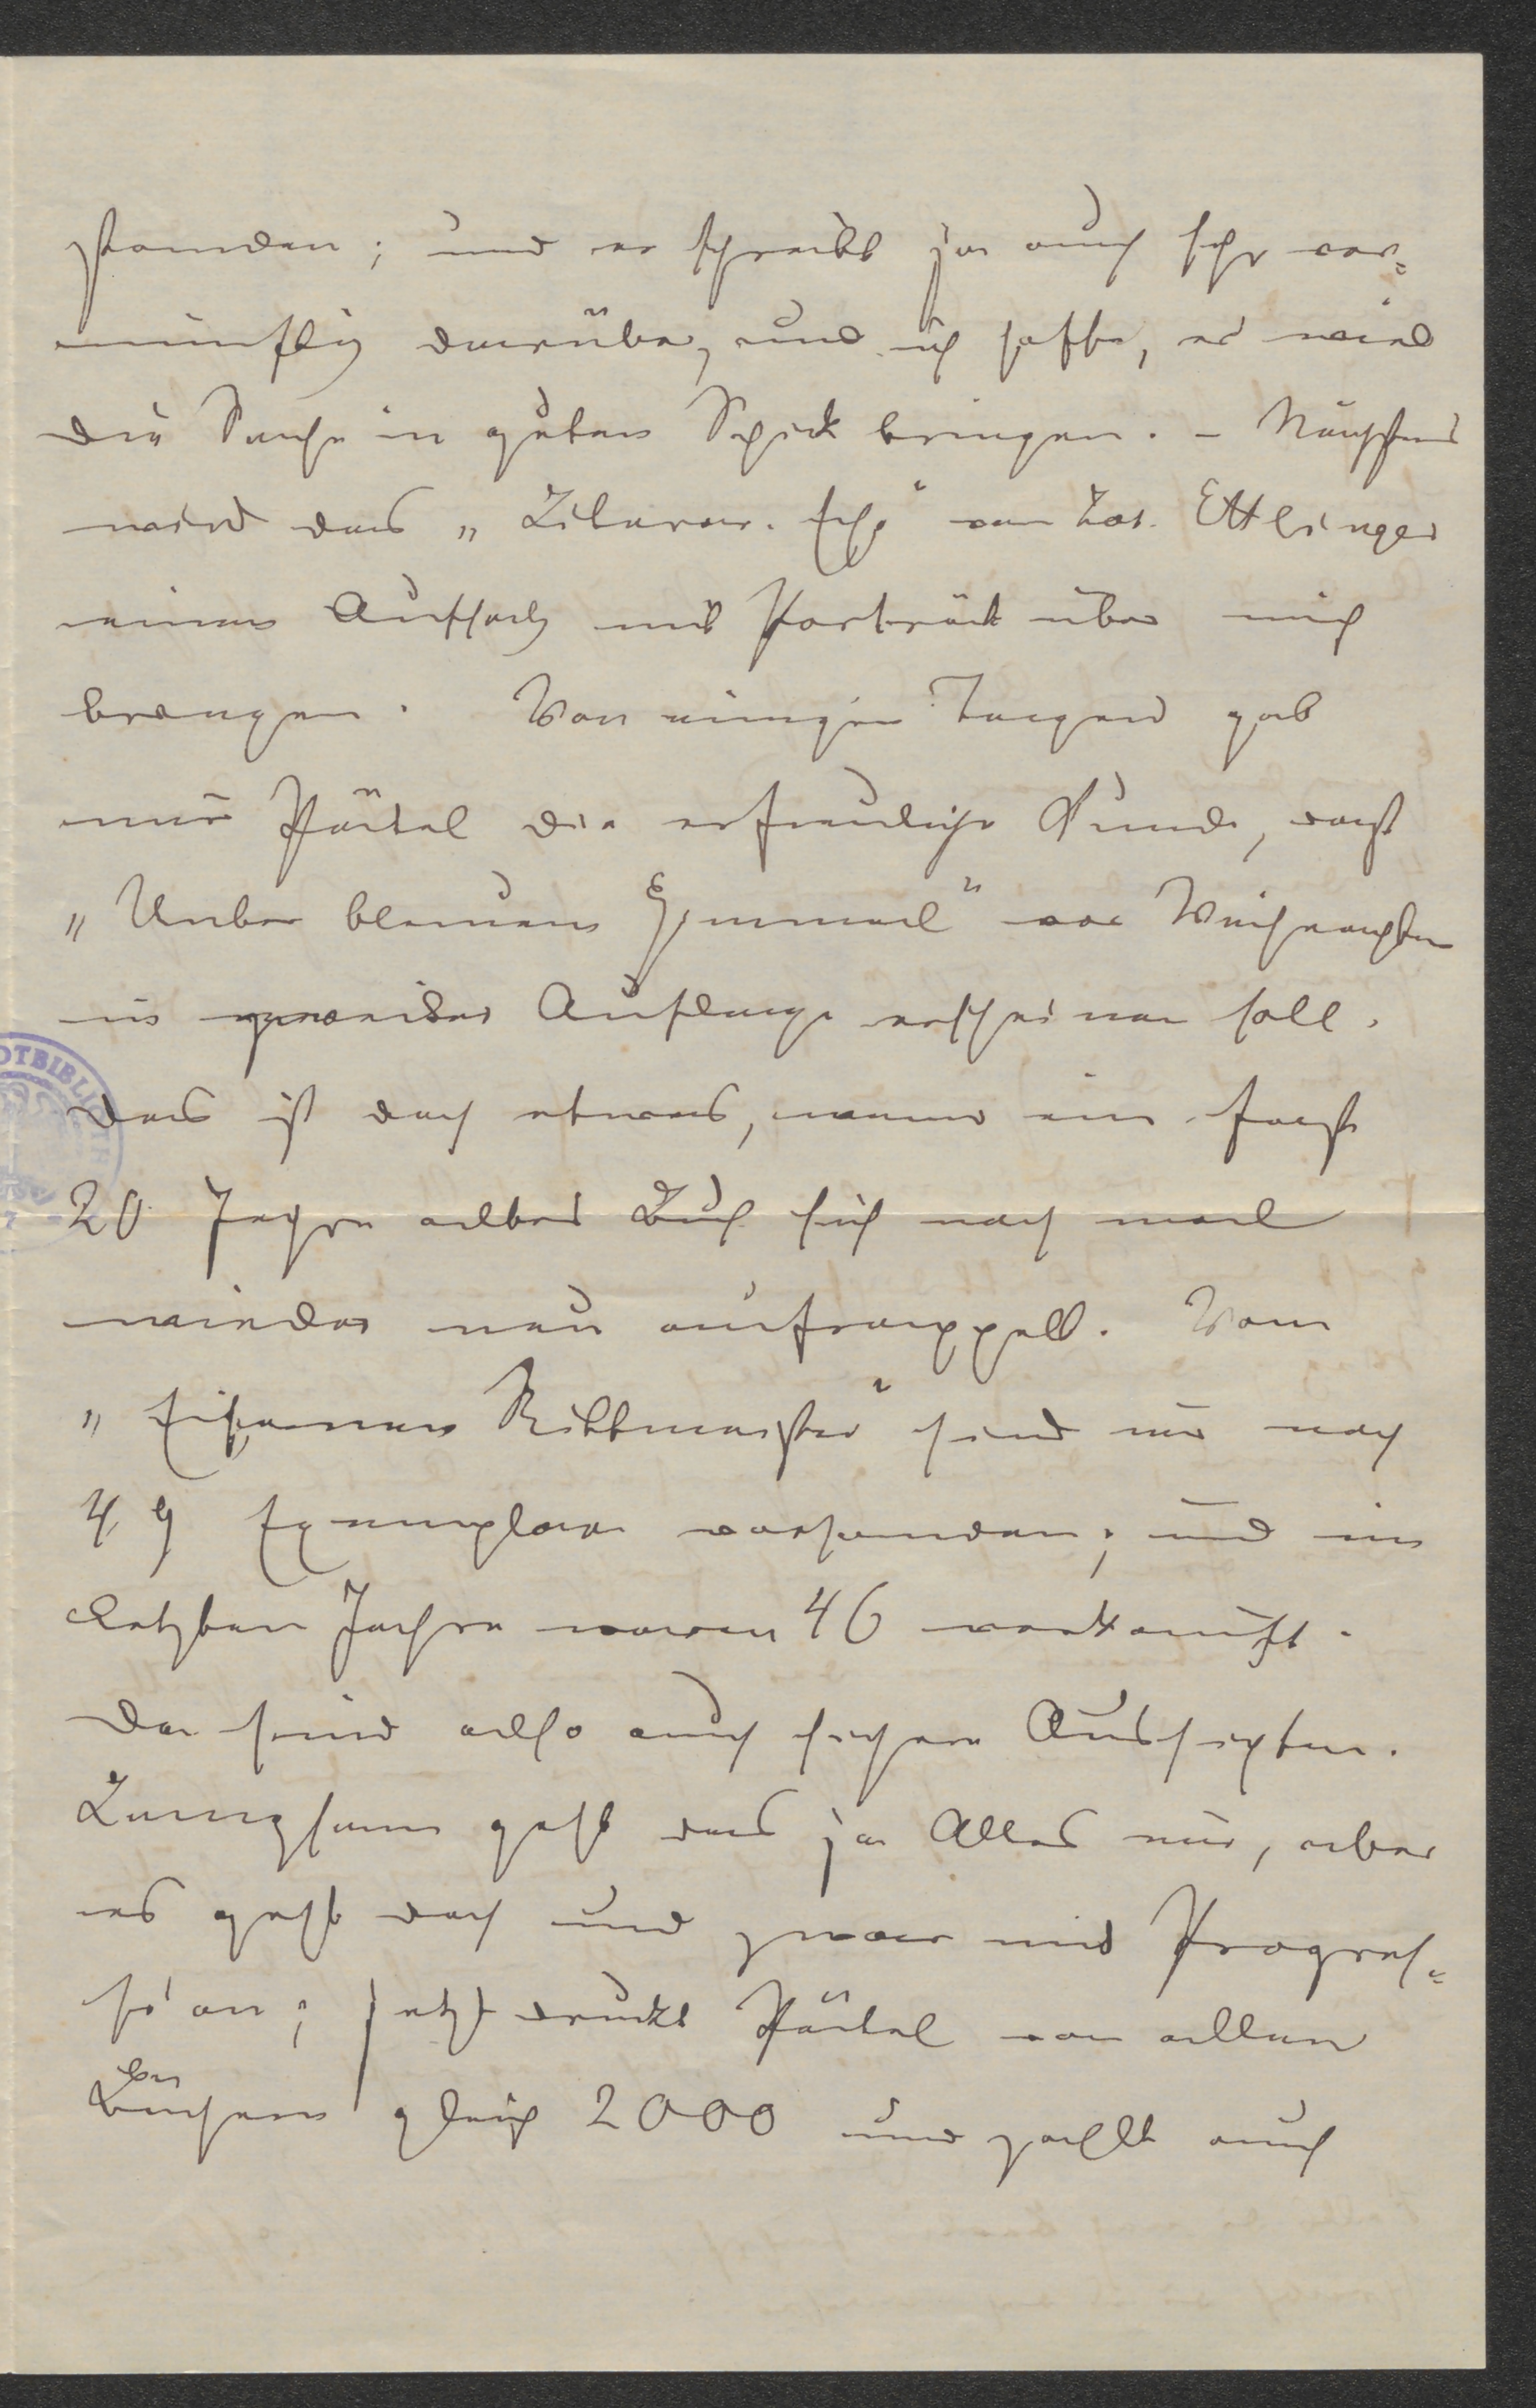 standen; und er schreibt ja auch sehr ver-
nünftig darüber, und ich hoffe, er wird
die Sache in guten Schick bringen. – Nächstens
wird das „Literar. Echo“ von Ettlinger
einen Aufsatz mit Porträt über mich
bringen. Vor einigen Tagen gab
mir Pätel die erfreuliche Kunde, daß
„Unter blauem Himmel“ vor Weihnachten
in zweiter Auflage erscheinen soll.
Das ist doch etwas, wenn ein fast
20 Jahre altes Buch sich noch mal
wieder neu aufrappelt. Vom
„Eisernen Rittmeister“ sind nur noch
49 Exemplare vorhanden; und im
letzten Jahre waren 46 verkauft.
Da sind also auch sichere Aussichten.
Langsam geht das ja Alles nur, aber
es geht doch und zwar mit Progres-
sion; jetzt druckt Pätel von allen
Büchern gleich 2000 und zahlt auch
OTBIBLIOTHE